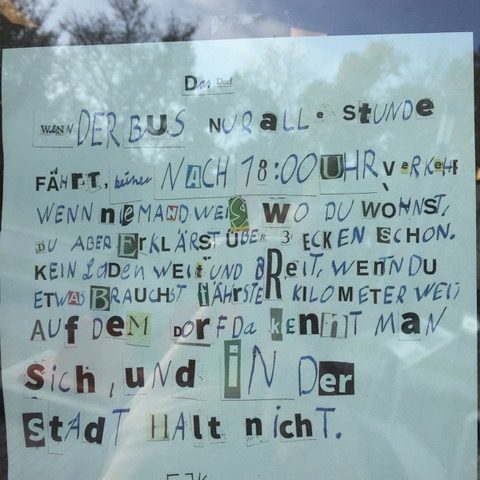 Das Dorf
WENN DER BUS NUR ALLE STUNDE
FÄHRT, keiner NACH 18:00 UHR VerKEHR
WENN nieMAND WEIS WO DU WOHNST,
DU ABER ErKLÄRST ÜBER 3 ECKEN SCHON.
KEIN LaDEN WEIT UND BREIT, WENN DU
ETWAS BRAUCHST fÄHRST KILOMETER WEIT
AUf DEM DORF Da KENNT MAN
Sich, und IN DER
StADT HAlt nicht.